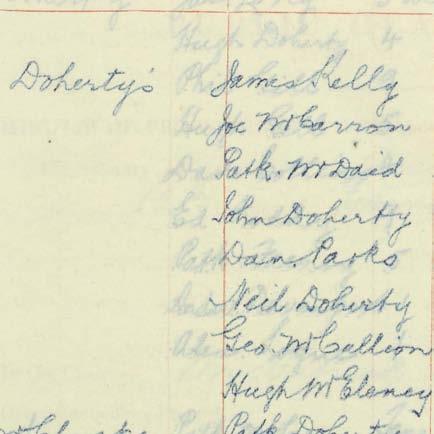 Doherty's James Kelly
Joe McCarron
Patk. McDaid
John Doherty
Dan. Parks
Neil Doherty
Geo. McCallion
Hugh McElaney
Patk. Doherty